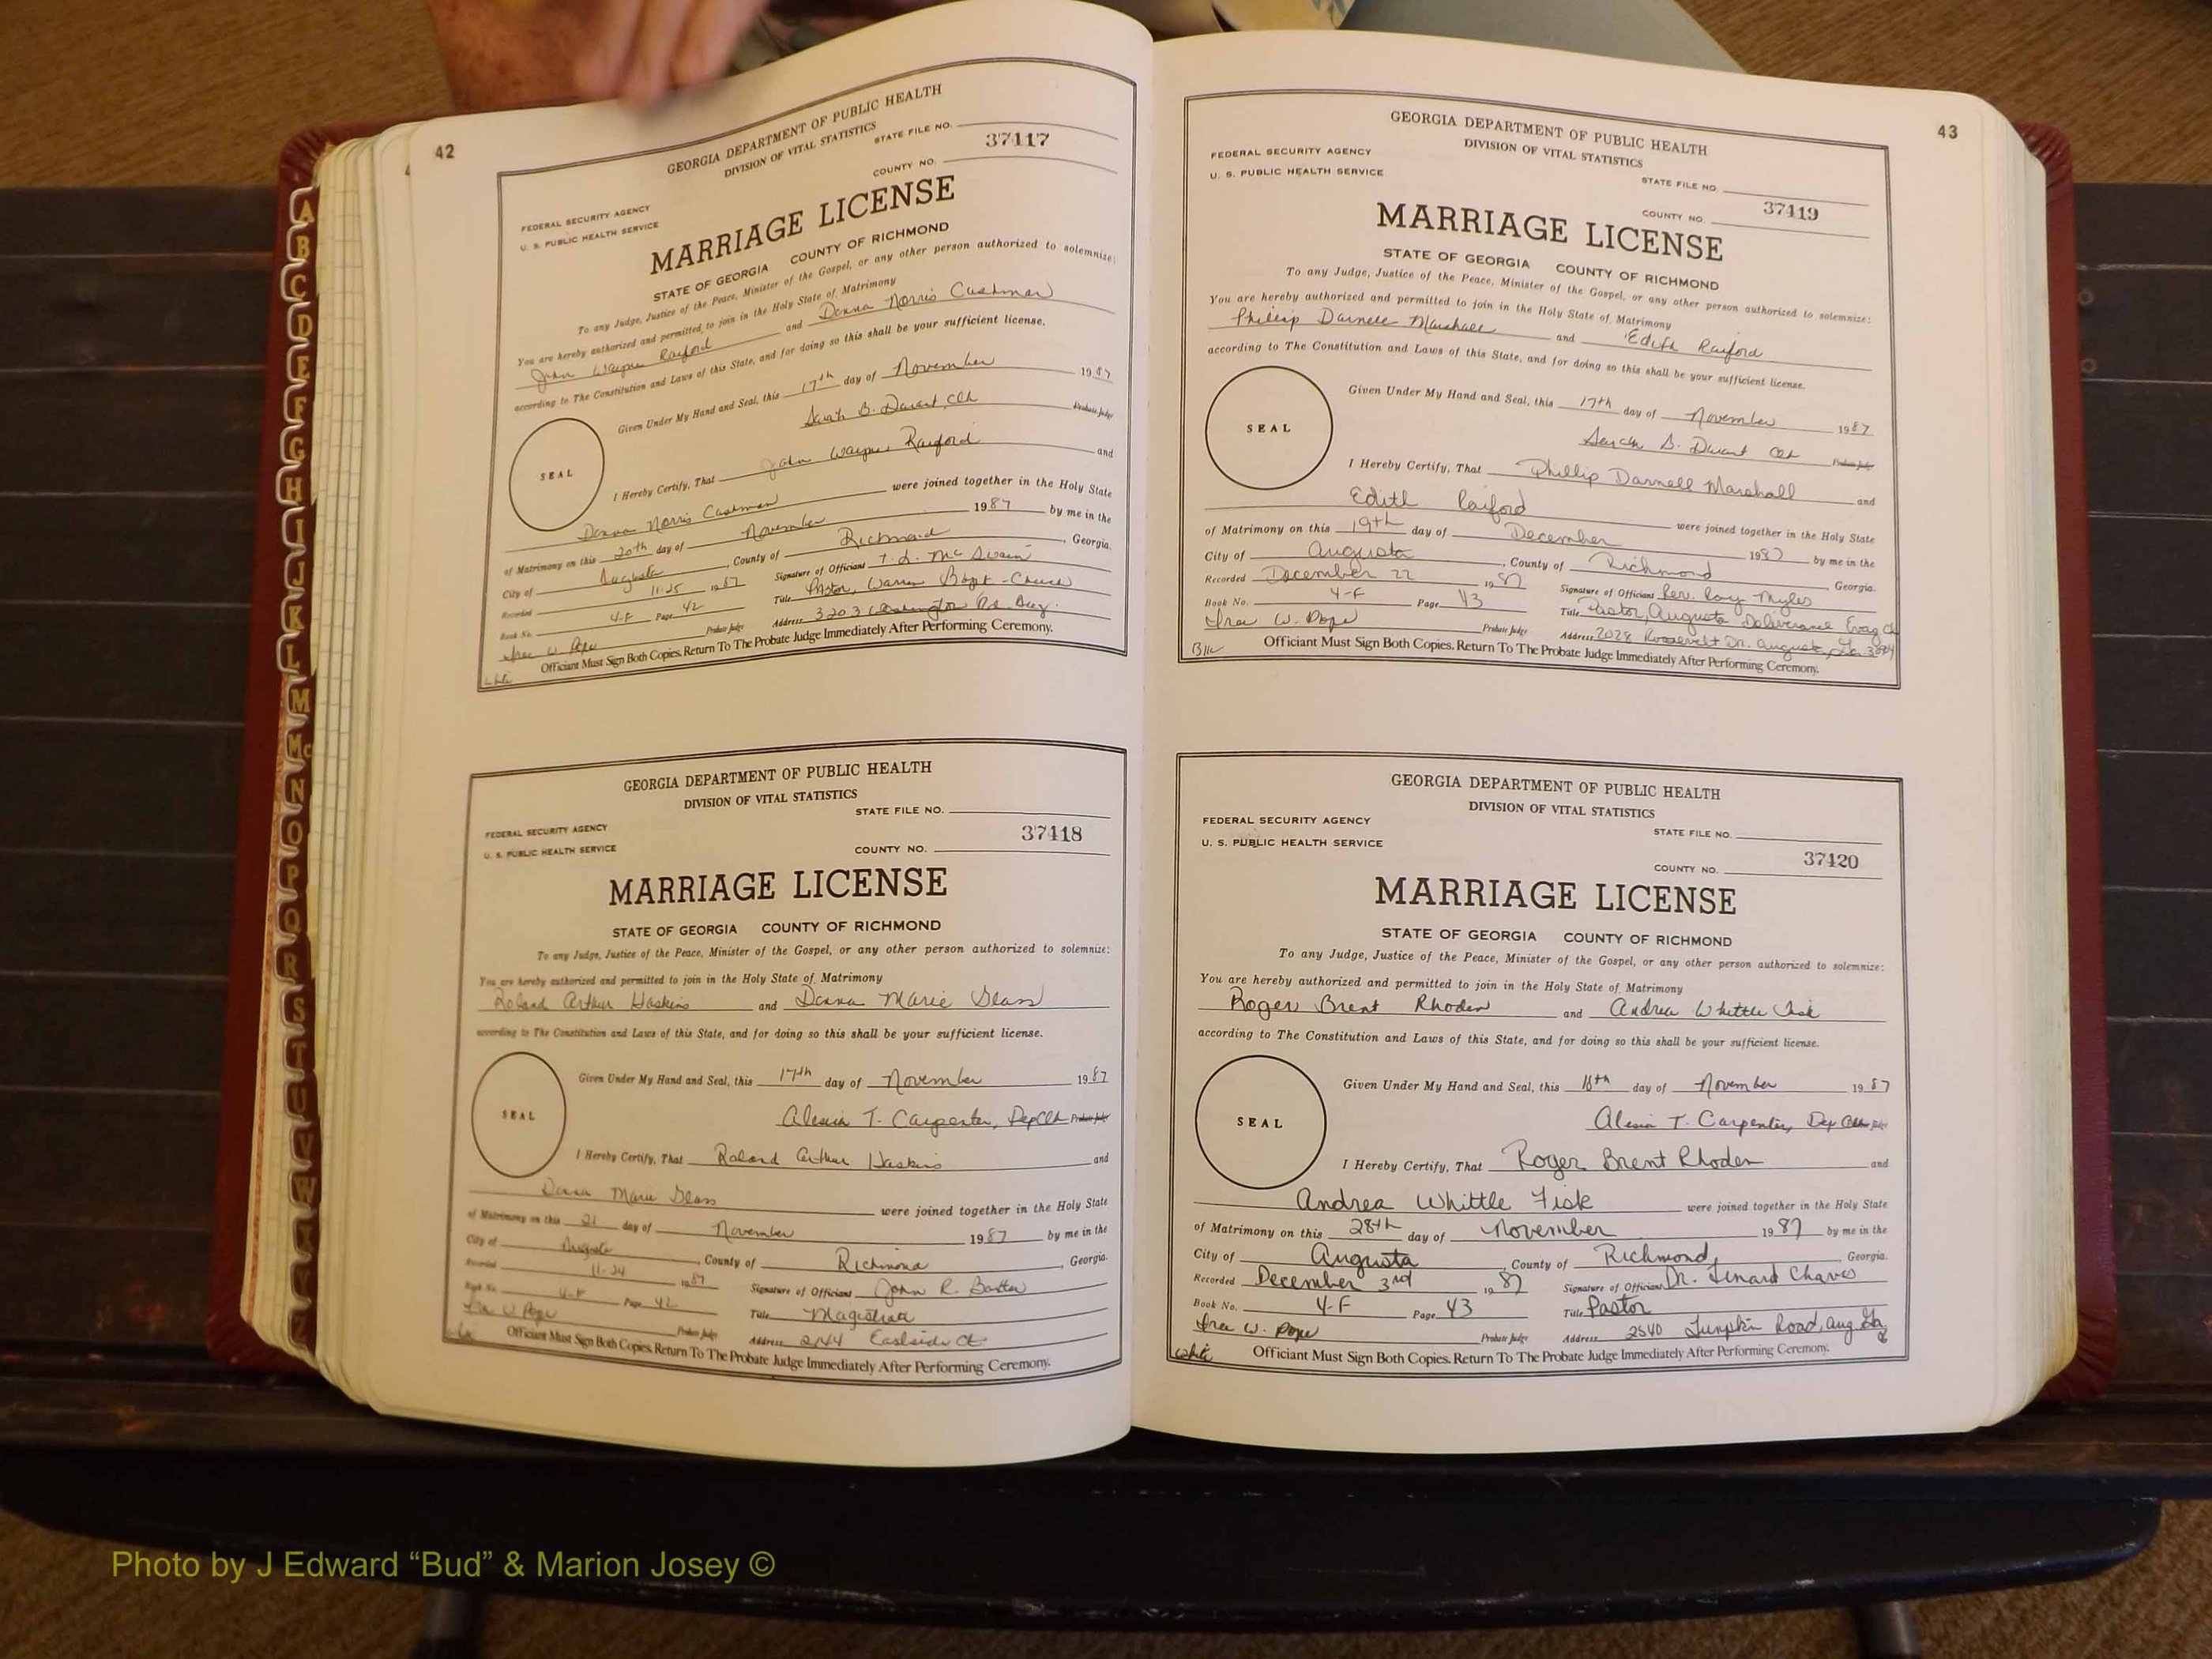 42
GEORGIA DEPARTMENT OF PUBLIC HEALTH
DIVISION OF VITAL STATISTICS
STATE FILE NO.
37417
FEDERAL SECURITY AGENCY
U. S. PUBLIC HEALTH SERVICE
COUNTY NO.
MARRIAGE LICENSE
STATE OF GEORGIA COUNTY OF RICHMOND
To any Judge, Justice of the Peace, Minister of the Gospel, or any other person authorized to solemnize:
You are hereby authorized and permitted to join in the Holy State of Matrimony
John Wayne Raiford and Donna Norris Cushman
according to The Constitution and Laws of this State, and for doing so this shall be your sufficient license.
Given Under My Hand and Seal, this 17th day of November 1987
Sarah B. Probate Judge
SEAL
I Hereby Certify, That John Wayne Raiford and
Donna Norris Cushman were joined together in the Holy State
of Matrimony on this 20th day of November 1987 by me in the
City of Augusta, County of Richmond, Georgia.
Recorded 11-25 1987 Signature of Officiant T. L. McSwain
Book No. 4-F Page 42 Title Pastor, Warren Bapt-Church
Ira W. Pope Probate Judge Address 3203 Washington Rd. Aug.
Officiant Must Sign Both Copies. Return To The Probate Judge Immediately After Performing Ceremony.
white
GEORGIA DEPARTMENT OF PUBLIC HEALTH
DIVISION OF VITAL STATISTICS
STATE FILE NO.
37418
FEDERAL SECURITY AGENCY
U. S. PUBLIC HEALTH SERVICE
COUNTY NO.
MARRIAGE LICENSE
STATE OF GEORGIA COUNTY OF RICHMOND
To any Judge, Justice of the Peace, Minister of the Gospel, or any other person authorized to solemnize:
You are hereby authorized and permitted to join in the Holy State of Matrimony
Roland Arthur Haskins and Donna Marie Glass
according to The Constitution and Laws of this State, and for doing so this shall be your sufficient license.
Given Under My Hand and Seal, this 17th day of November 1987
Alesia T. Carpenter, Dep Clk Probate Judge
SEAL
I Hereby Certify, That Roland Arthur Haskins and
Donna Marie Glass were joined together in the Holy State
of Matrimony on this 21 day of November 1987 by me in the
City of Augusta, County of Richmond Georgia.
Recorded 11-24 1987 Signature of Officiant John R. Baxter
Book No. 4-F Page 42 Title Magistrate
Ira W. Pope Probate Judge Address 2144 Eastside Ct
Officiant Must Sign Both Copies. Return To The Probate Judge Immediately After Performing Ceremony.
43
GEORGIA DEPARTMENT OF PUBLIC HEALTH
DIVISION OF VITAL STATISTICS
FEDERAL SECURITY AGENCY
U. S. PUBLIC HEALTH SERVICE
STATE FILE NO.
37419
COUNTY NO.
MARRIAGE LICENSE
STATE OF GEORGIA COUNTY OF RICHMOND
To any Judge, Justice of the Peace, Minister of the Gospel, or any other person authorized to solemnize:
You are hereby authorized and permitted to join in the Holy State of Matrimony
Phillip Darnell Marshall and Edith Raiford
according to The Constitution and Laws of this State, and for doing so this shall be your sufficient license.
Given Under My Hand and Seal, this 17th day of November 1987
Sarah B. Clk Probate Judge
SEAL
I Hereby Certify, That Phillip Darnell Marshall and
Edith Raiford were joined together in the Holy State
of Matrimony on this 19th day of December 1987 by me in the
City of Augusta, County of Richmond Georgia.
Recorded December 22 1987 Signature of Officiant Rev. Roy Myles
Book No. 4-F Page 43 Title Pastor, Augusta Deliverance Evag Ch
Ira W. Pope Probate Judge Address 2028 Roosevelt Dr. Augusta, Ga. 30904
Blk Officiant Must Sign Both Copies. Return To The Probate Judge Immediately After Performing Ceremony.
GEORGIA DEPARTMENT OF PUBLIC HEALTH
DIVISION OF VITAL STATISTICS
FEDERAL SECURITY AGENCY
U. S. PUBLIC HEALTH SERVICE
STATE FILE NO.
37420
COUNTY NO.
MARRIAGE LICENSE
STATE OF GEORGIA COUNTY OF RICHMOND
To any Judge, Justice of the Peace, Minister of the Gospel, or any other person authorized to solemnize:
You are hereby authorized and permitted to join in the Holy State of Matrimony
Roger Brent Rhoden and Andrea Whittle Fisk
according to The Constitution and Laws of this State, and for doing so this shall be your sufficient license.
Given Under My Hand and Seal, this 18th day of November 1987
Alesia T. Carpenter, Dep Clk Probate Judge
SEAL
I Hereby Certify, That Roger Brent Rhoden and
Andrea Whittle Fisk were joined together in the Holy State
of Matrimony on this 28th day of November 1987 by me in the
City of Augusta, County of Richmond, Georgia.
Recorded December 3rd 1987 Signature of Officiant Dr. Lenard Chaves
Book No. 4-F Page 43 Title Pastor
Ira W. Pope Probate Judge Address 2540 Lumpkin Road, Aug Ga.
white Officiant Must Sign Both Copies. Return To The Probate Judge Immediately After Performing Ceremony.
A
B
C
D
E
F
G
H
I
J
K
L
M
Mc
N
O
P
Q
R
S
T
U
V
W
X
Y
Z
Photo by J Edward “Bud” & Marion Josey ©